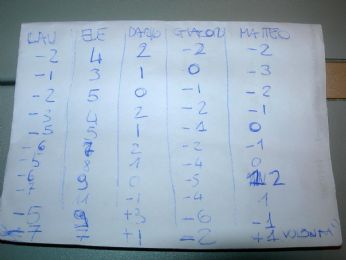 LAU ELE DARIO GIACOM MATTEO
-2 4 2 -2 -2
-1 3 1 0 -3
-2 5 0 -1 -2
-3 4 2 -2 -1
-5 5 1 -1 0
-6 2 -2 -1
-5 1 -4 0
-6 0 -5 2
-7 -1 -4 1
-5 +3 -6 -1
7 +1 -2 +1